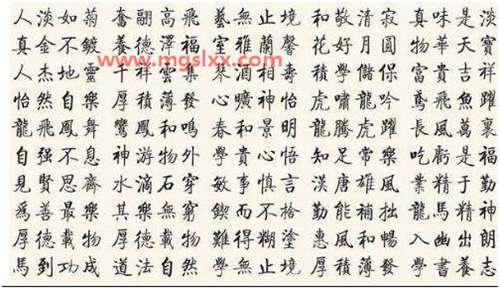 人淡如菊 奮翮高飛 藝無止境 和敬清寂 真味是淡
真金不鍍 養德澤福 室雅蘭馨 花好月圓 物華天寶
www.mgslxx.com
人杰地靈 千祥雲集 琴 酒 相 學儲 富貴吉祥
怡然自樂 厚積薄發 心曠神怡 虎嘯龍吟 鳶飛魚躍
龍飛鳳舞 鸞鳳和鳴 春和景明 龍騰虎躍 長風萬裏
自强不息 神游物外 學貴心悟 知足常樂 吃虧是福
見賢思齊 水滴石穿 敏事慎言 漢唐雄風 業精于勤
爲善最樂 其樂無窮 鍥而不捨 勤能補拙 龍馬精神
厚德載物 厚德載物 難得糊塗 惠風和暢 入幽出朗
馬到功成 道法自然 學無止境 厚積薄發 學書養志